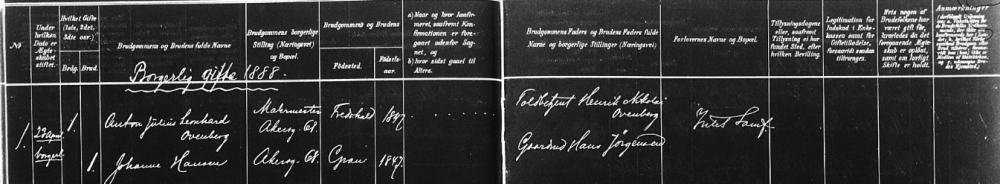 No
Under hvilken Dato er Ægteskabet stiftet.
Hvilket Gifte (1ste, 2det, 3die osv.)
Brdg. Brud.
Brudgommens og Brudens fulde Navne
Brudgommens borgerlige Stilling (Næringsvei) og Bopæl.
Brudgommens og Brudens
Fødested.
Fødselsaar.
a) Naar og hvor konfirmeret, saafremt Konfirmationen er foregaaet udenfor Sognet, og
b) hvor sidst gaaet til Alters.
Brudgommens Faders og Brudens Faders fulde Navne og borgerlige Stillinger (Næringsvei)
Forlovernes Navne og Bopæl.
Tillysningsdagene eller, saafremt Tillysning ei har fundet Sted, efter hvilken Bevilling.
Legitimation for Indskud i Enkekassen samt for Giftetilladelse, forsaavidt saadan tiltrænges.
Hvis nogen af Brudefolkene har været gift før, hvorledes da det foregaaende Ægteskab er opløst, samt om lovligt Skifte er holdt.
Anmærkninger
Borgerlig gifte 1888.
1. 22 April borgerl. 1. Anton Julius Leonhard Ovenberg
Malermester Akersg. 61. Fredshald 1847
Toldbetjent Henrik Nikolai Ovenberg
Intet Samf.
1. Johanne Hansen Akersg. 61. Gran 1847.
Gaardmd Hans Jörgensen